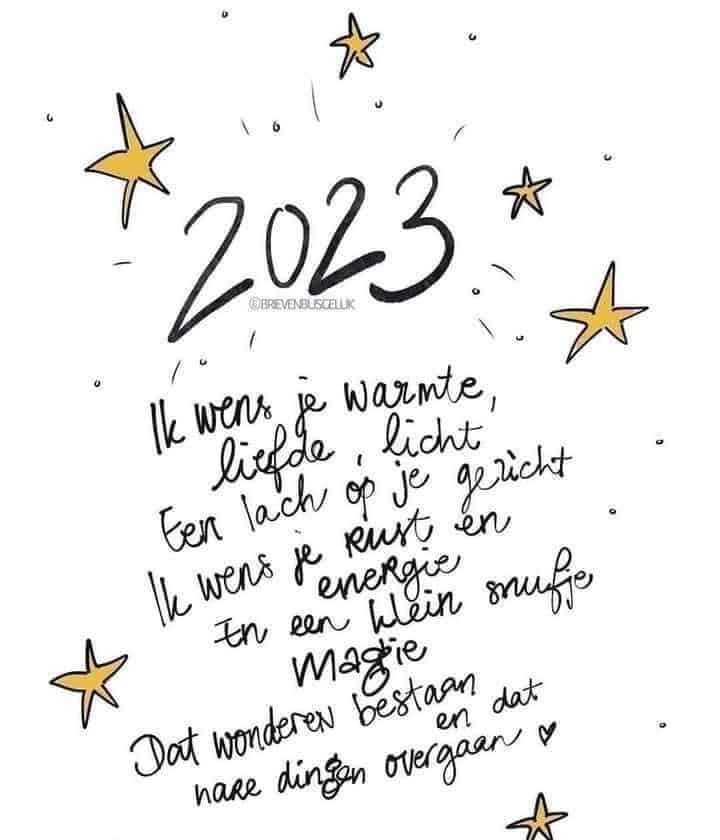 2023
©BRIEVENBUSGELUK
Ik wens je warmte,
liefde, licht
Een lach op je gezicht
Ik wens je rust en
energie
In een klein snufje
magie
Dat wonderen bestaan
en dat
nare dingen overgaan